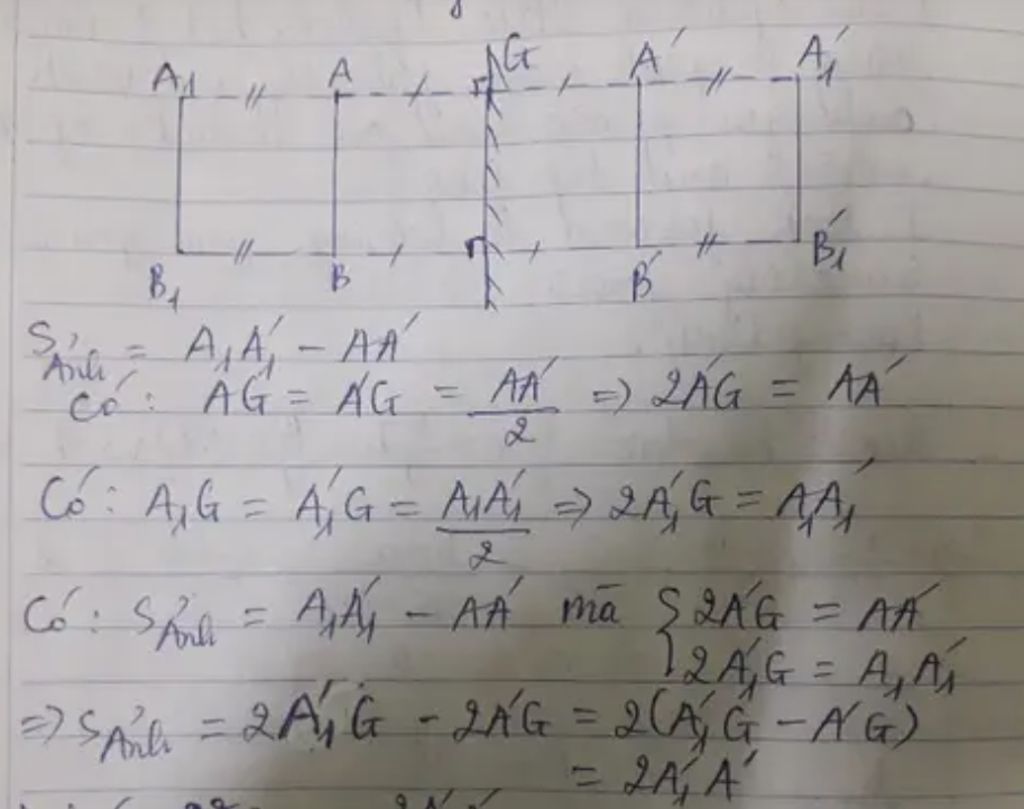 G
A₁ A A' A₁'
B₁ B B' B₁'
S_Ảnh = A₁A₁' - AA'
Có: AG = A'G = AA'/2 => 2A'G = AA'
Có: A₁G = A₁'G = A₁A₁'/2 => 2A₁'G = A₁A₁'
Có: S_Ảnh = A₁A₁' - AA' mà { 2A'G = AA'
2A₁'G = A₁A₁'
=> S_Ảnh = 2A₁'G - 2A'G = 2(A₁'G - A'G)
= 2A₁'A'